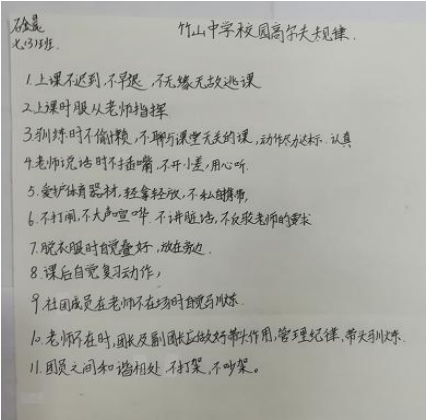 石金晨
七(3)班.
竹山中学校园高尔夫规律.
1.上课不迟到,不早退,不无缘无故逃课
2.上课时服从老师指挥
3.训练时不偷懒,不聊与课堂无关的课,动作尽力达标.认真
4.老师说话时不插嘴,不开小差,用心听.
5.爱护体育器材,轻拿轻放,不私自携带,
6.不打闹,不大声喧哗,不讲脏话,不反驳老师的要求
7.脱衣服时自觉叠好,放在旁边.
8.课后自觉复习动作,
9.社团成员在老师不在场时自觉训练.
10.老师不在时,团长及副团长应做好带头作用,管理纪律,带头训练.
11.团员之间和谐相处,不打架,不吵架。